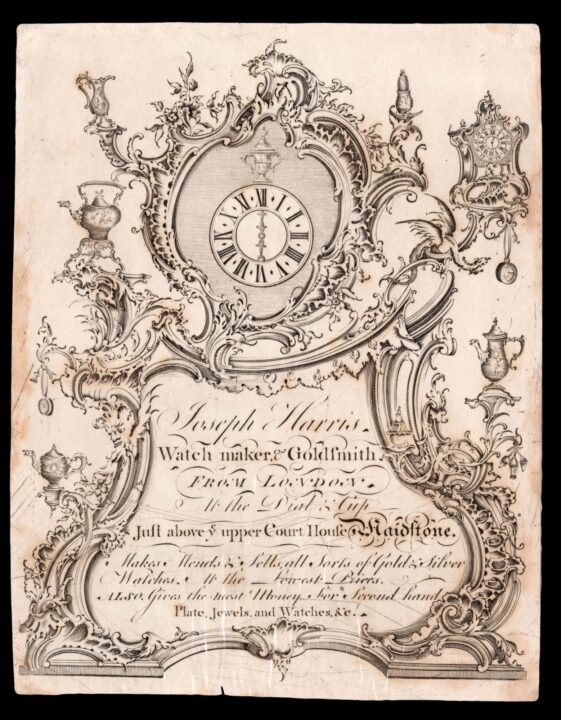 XII I II III IIII V VI VII VIII IX X XI
Joseph Harris.
Watch maker, & Goldſmith
FROM LONDON
At the Dial & Cup
Juſt above yͤ upper Court Houſe Maidſtone.
Makes Mends & Sells, all Sorts of Gold & Silver
Watches. At the Lowest Prices.
ALSO, Gives the moſt Money For Second hand
Plate, Jewels, and Watches, &c.